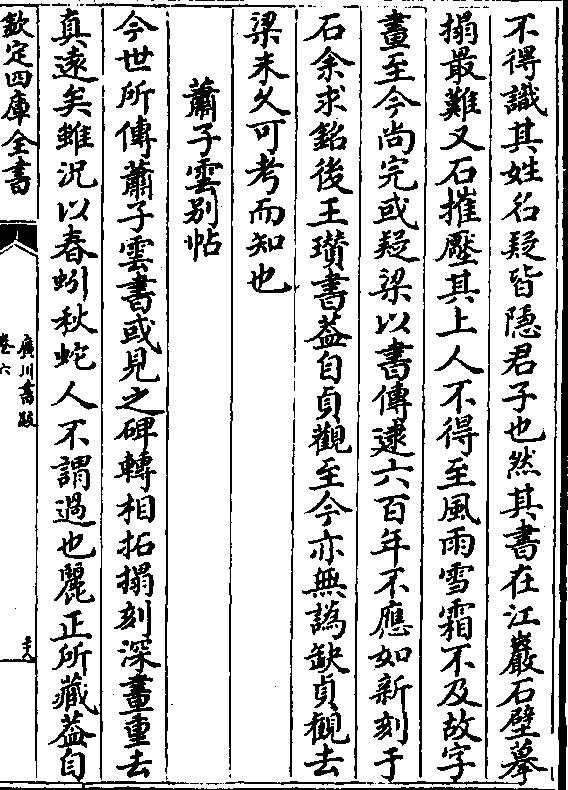 不得識其姓名疑皆隱君子也然其書在江巖石壁摹
搨最難又石摧壓其上人不得至風雨雪霜不及故字
畫至今尚完或疑梁以書傳逮六百年不應如新刻于
石余求銘後王瓚書葢自貞觀至今亦無譌缺貞觀去
梁未久可考而知也
蕭子雲别帖
今世所傳蕭子雲書或見之碑轉相拓搨刻深畫重去
真遠矣雖況以春蚓秋蛇人不謂過也麗正所藏葢自
欽定四庫全書
廣川書跋
卷六